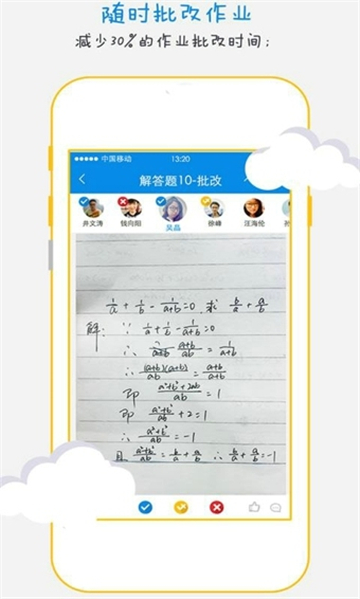 随时批改作业
减少30%的作业批改时间；
中国移动 13:20
解答题10-批改
井文涛 钱向阳 吴晶 徐峰 汪海伦 孙
1/a + 1/b - 1/(a+b) = 0, 求 b/a + a/b
解: ∵ 1/a + 1/b - 1/(a+b) = 0
∴ (a+b)/ab = 1/(a+b)
∴ (a+b)(a+b)/ab = (a+b)/(a+b)
即 (a²+b²+2ab)/ab = 1
即 (a²+b²)/ab + 2 = 1
∴ (a²+b²)/ab = -1
且 (a²+b²)/ab = b/a + a/b ∴ b/a + a/b = -1